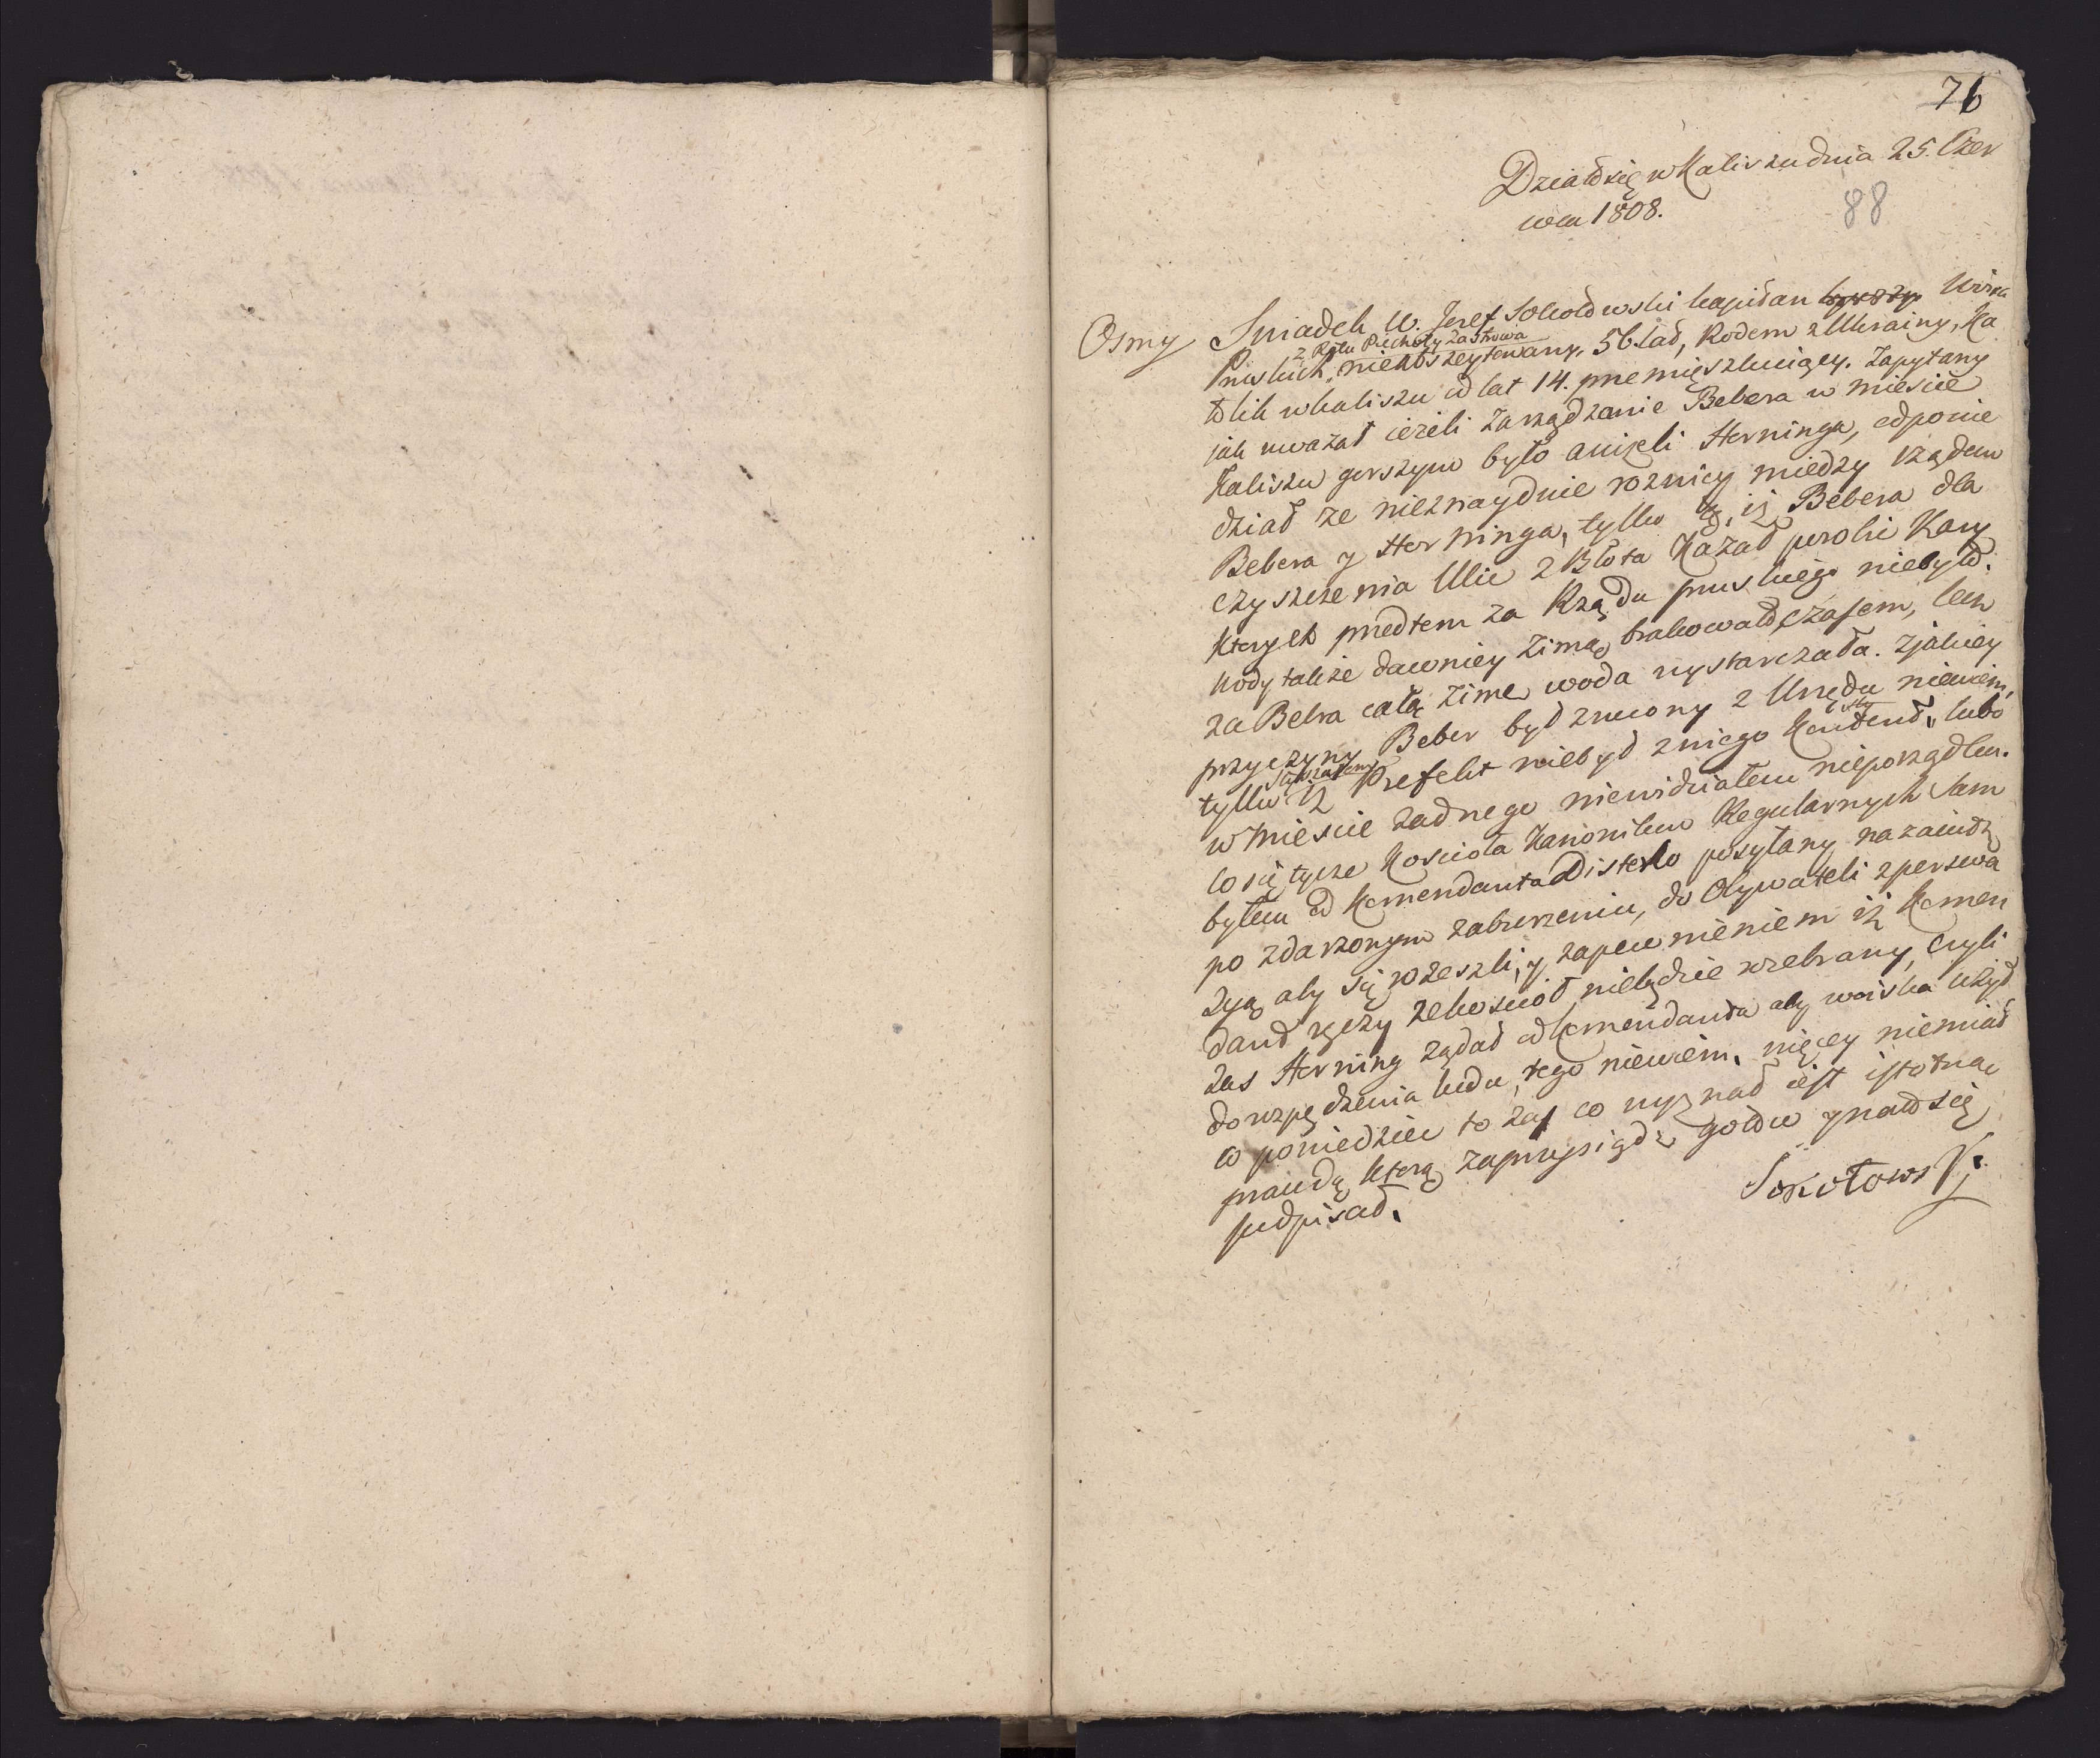 76
Działo się w Kaliszu dnia 25. Czer
wca 1808.
88
Osmy Swiadek W. Jozef Sokołowski kapitan Woysk
z Rgtu Piechoty Zastrowa
Pruskich, 56. lat, Rodem z Ukrainy, Ka
tolik w kaliszu od lat 14. pomieszkuiący. Zapytany
jak uważał ieżeli zarządzanie Bebera w miescie
Kaliszu gorszym było aniżeli Herninga, odpowie
dział ze nieznayduie roznicy między rządem
Bebera y Herninga, tylko tę, iż Bebera dla
czyszczenia Ulic z Błota Kazał porobić Kary
ktorych przedtem za Rządu pruskiego niebyło.
wody takze dawniey zimą brakowało czasem, lecz
za Bebra całą zime woda wystarczała. z jakiey
przyczyny Beber był zrucony z Urzędu niewiem,
słyszałem
tylko iż Prefekt niebył z niego Kontent, lubo
w miescie żadnego niewidziałem nieporządku.
co się tycze Koscioła Kanonikow Regularnych sam
byłem od Komendanta Disterlo posyłany nazaiutrz
po zdarzonym zaburzeniu, do Obywateli z perswa
zyą aby się rozeszli, y zapewnieniem iż Komen
dant ręczy ze kosciół niebędzie zrebrany, czyli
zas Herning żądał od Komendanta aby woiska użył
do rozpędzenia ludu, tego niewiem, więcey niemiał
co powiedziec to zas co wyznał iest istotną
prawdą którą zaprzysiądz gotow y na to się
podpisał.
Sokołowski